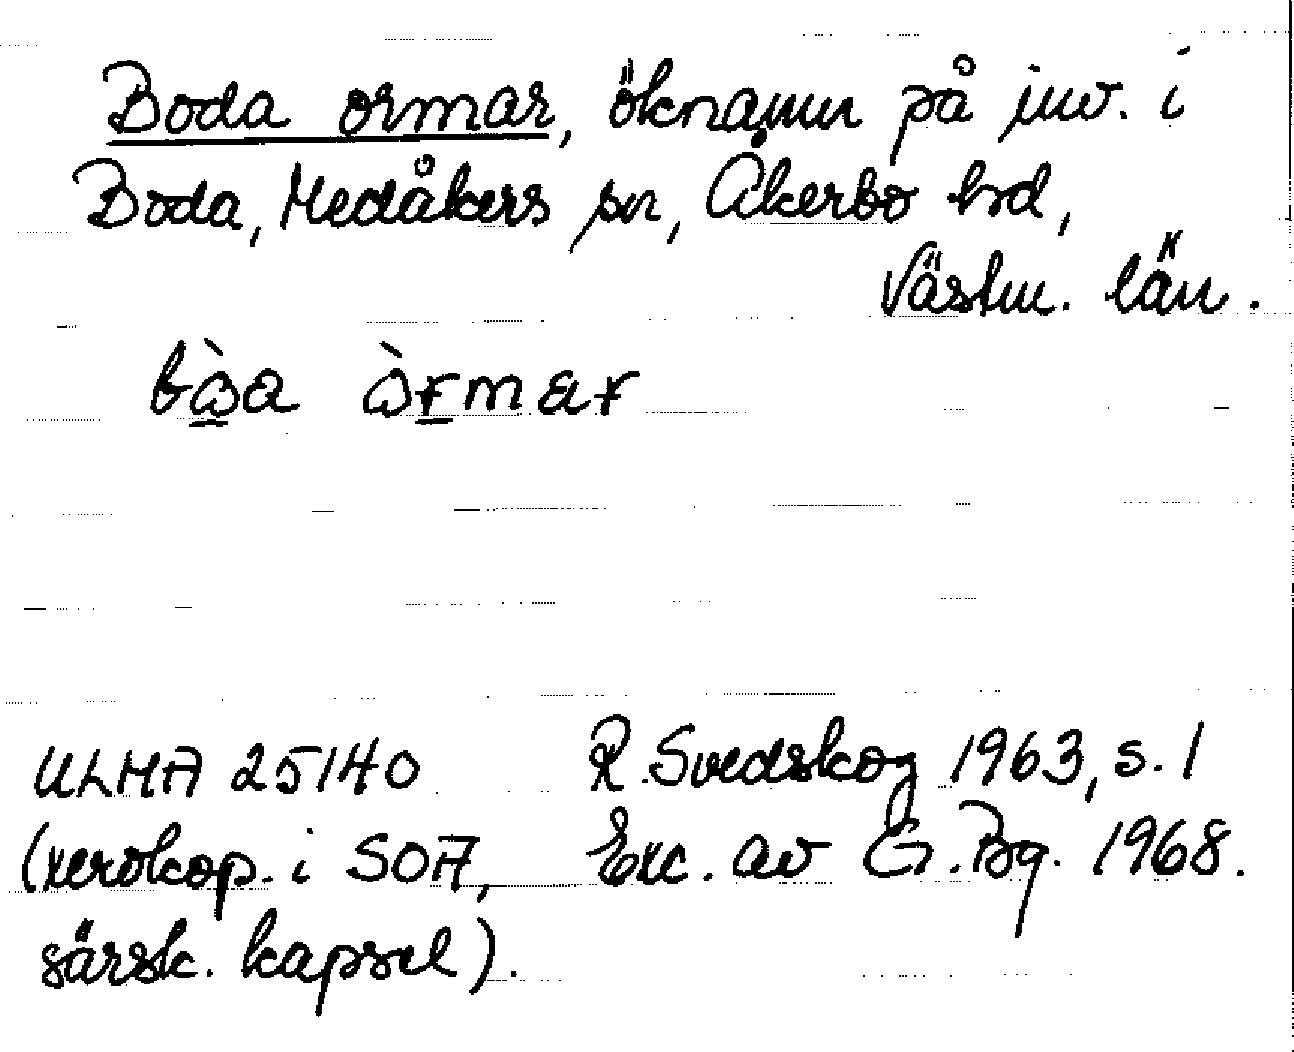 Boda ormar, öknamn på inv. i
Boda, Medåkers sn, Åkerbo hd,
Västm. län.
ULMA 25140 R. Svedskog 1963, s. 1
(xerokop. i SOA, Exc. av G. Bg. 1968.
särsk. kapsel).